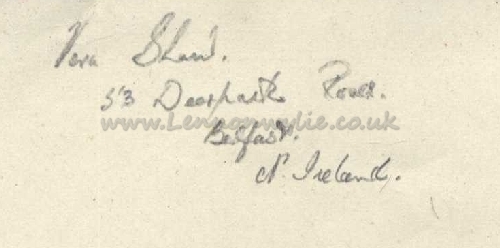 Vera Shaw.
53 Deerpark Road.
www.Lennonwylie.co.uk
Belfast.
N. Ireland.